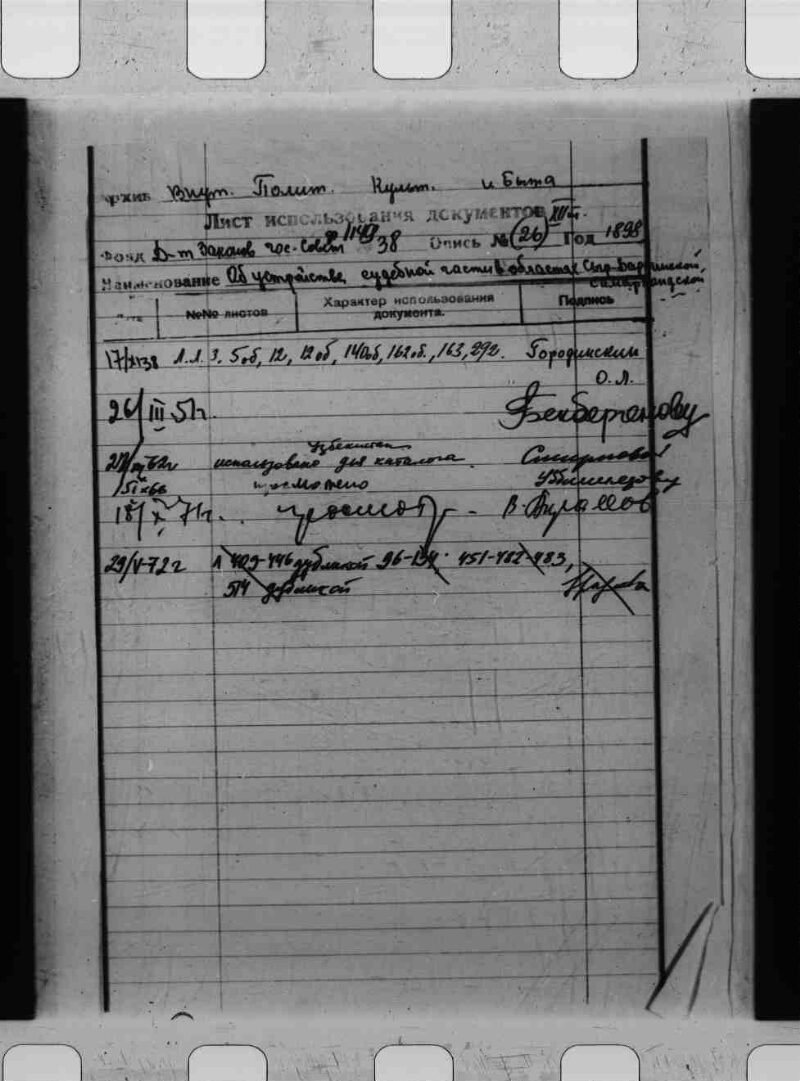 Архив Внут. Полит. Культ. и Быта
Лист использования документов XIII т.
Фонд Д-т Законов гос. Совет 1149 38 Опись № (26) Год 1898
Наименование Об устройстве судебной части в областях Сыр-Дарьинской,
Самаркандской
Дата №№ листов Характер использования документа. Подпись
17/XI 38 Л.Л. 3, 5об, 12, 12об, 140об, 162об., 163, 292. Городинский
О.Л.
26/III 51г. Бекберганову
Узбекистан
62г использовано для каталога. Смирнова
18/X 71г. просмотр - В.
29/V-72г л 409-446 дубликат 96- 451-482-483,
514 дубликат